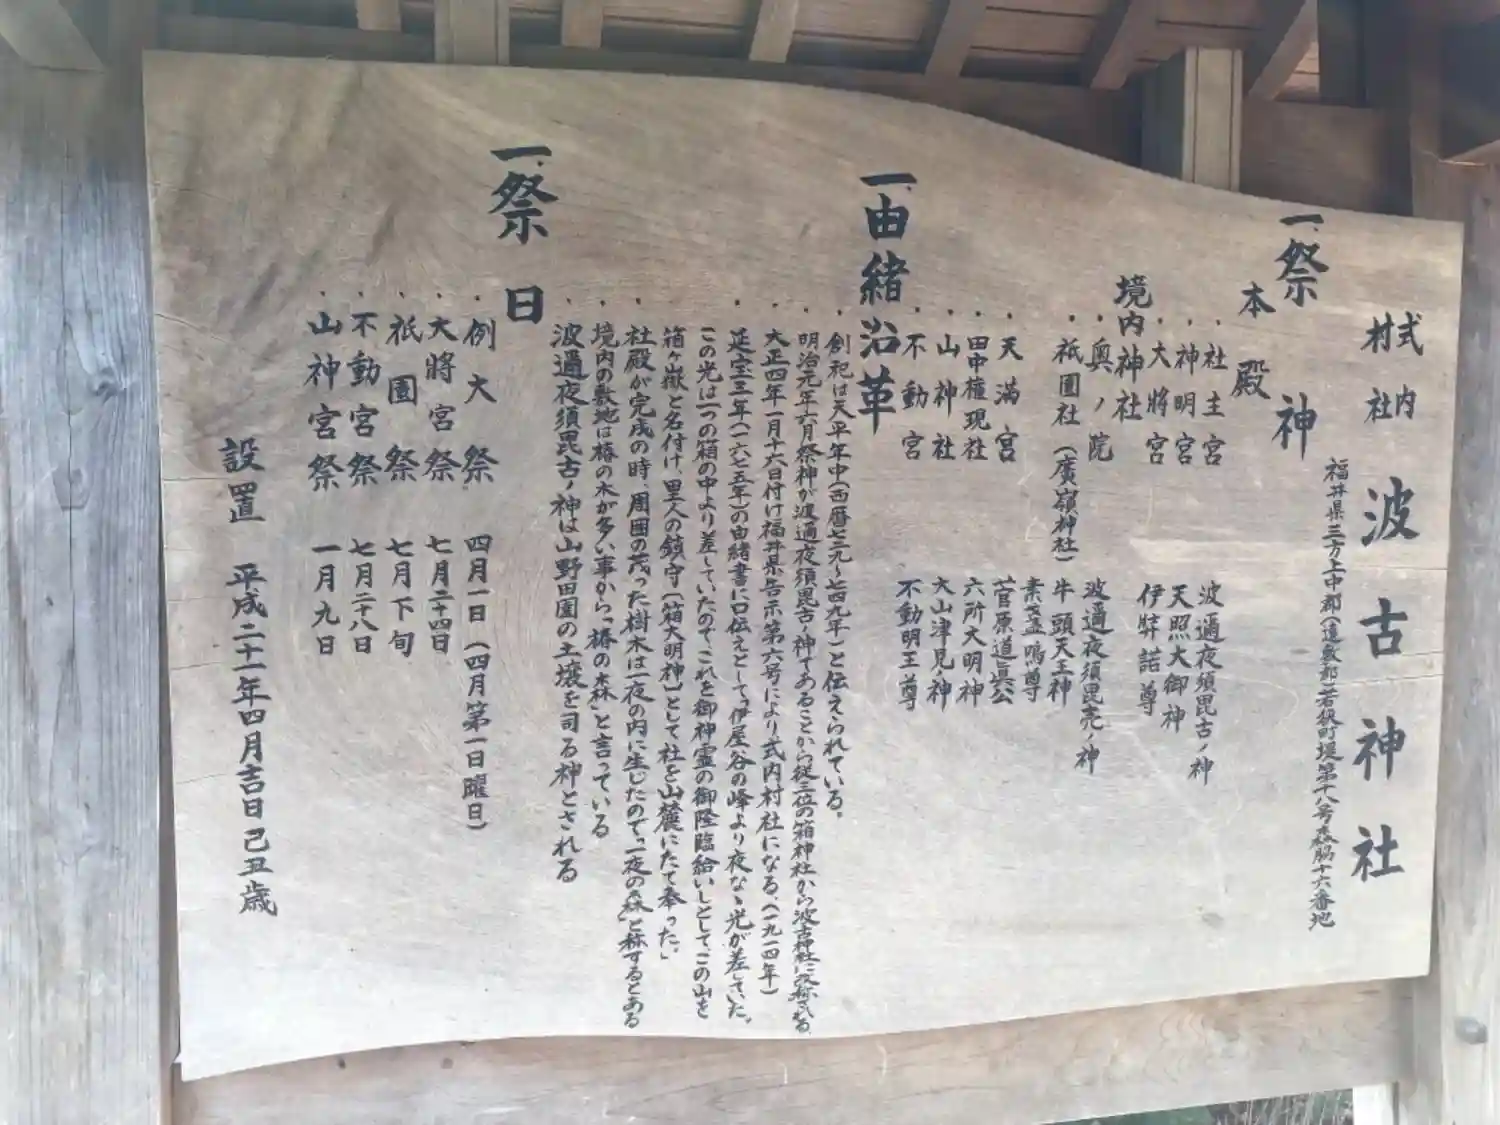 式内
村社
波古神社
福井県三方上中郡(遠敷郡)若狭町堤第十八号森脇十六番地
一.祭神
本殿
・社主宮 波邇夜須毘古ノ神
・神明宮 天照大御神
・大將宮 伊弉諾尊
境内神社
・奥ノ院 波邇夜須毘売ノ神
・祇園社(廣嶺神社) 牛頭天王神
素盞嗚尊
・天満宮 菅原道眞公
・田中権現社 六所大明神
・山神社 大山津見ノ神
・不動宮 不動明王尊
一.由緒沿革
・創祀は天平年中(西暦七二九~七四九年)と伝えられている。
・明治元年六月祭神が波邇夜須毘古ノ神であることから従三位の箱神社から波古神社に改称される
・大正四年一月十六日付け福井県告示第六号により式内村社になる、(一九一四年)
・延宝三年(一六七五年)の由緒書に口伝えとして、伊屋谷の峰より夜な〻光が差していた。
この光は一つの箱の中より差していたのでこれを御神霊の御降臨給いしとして、この山を
箱ヶ嶽と名付け、里人の鎮守〔箱大明神〕として社を山麓にたて奉った。」
・社殿が完成の時、周囲の茂った樹木は一夜の内に生じたので、"一夜の森"と称するとある
・境内の敷地は椿の木が多い事から、"椿の森"と言っている
・波邇夜須毘古ノ神は山野田園の土壌を司る神とされる
一.祭日
・例大祭 四月一日(四月第一日曜日)
・大將宮祭 七月二十四日
・祇園祭 七月下旬
・不動宮祭 七月二十八日
・山神宮祭 一月九日
設置 平成二十一年四月吉日己丑歳